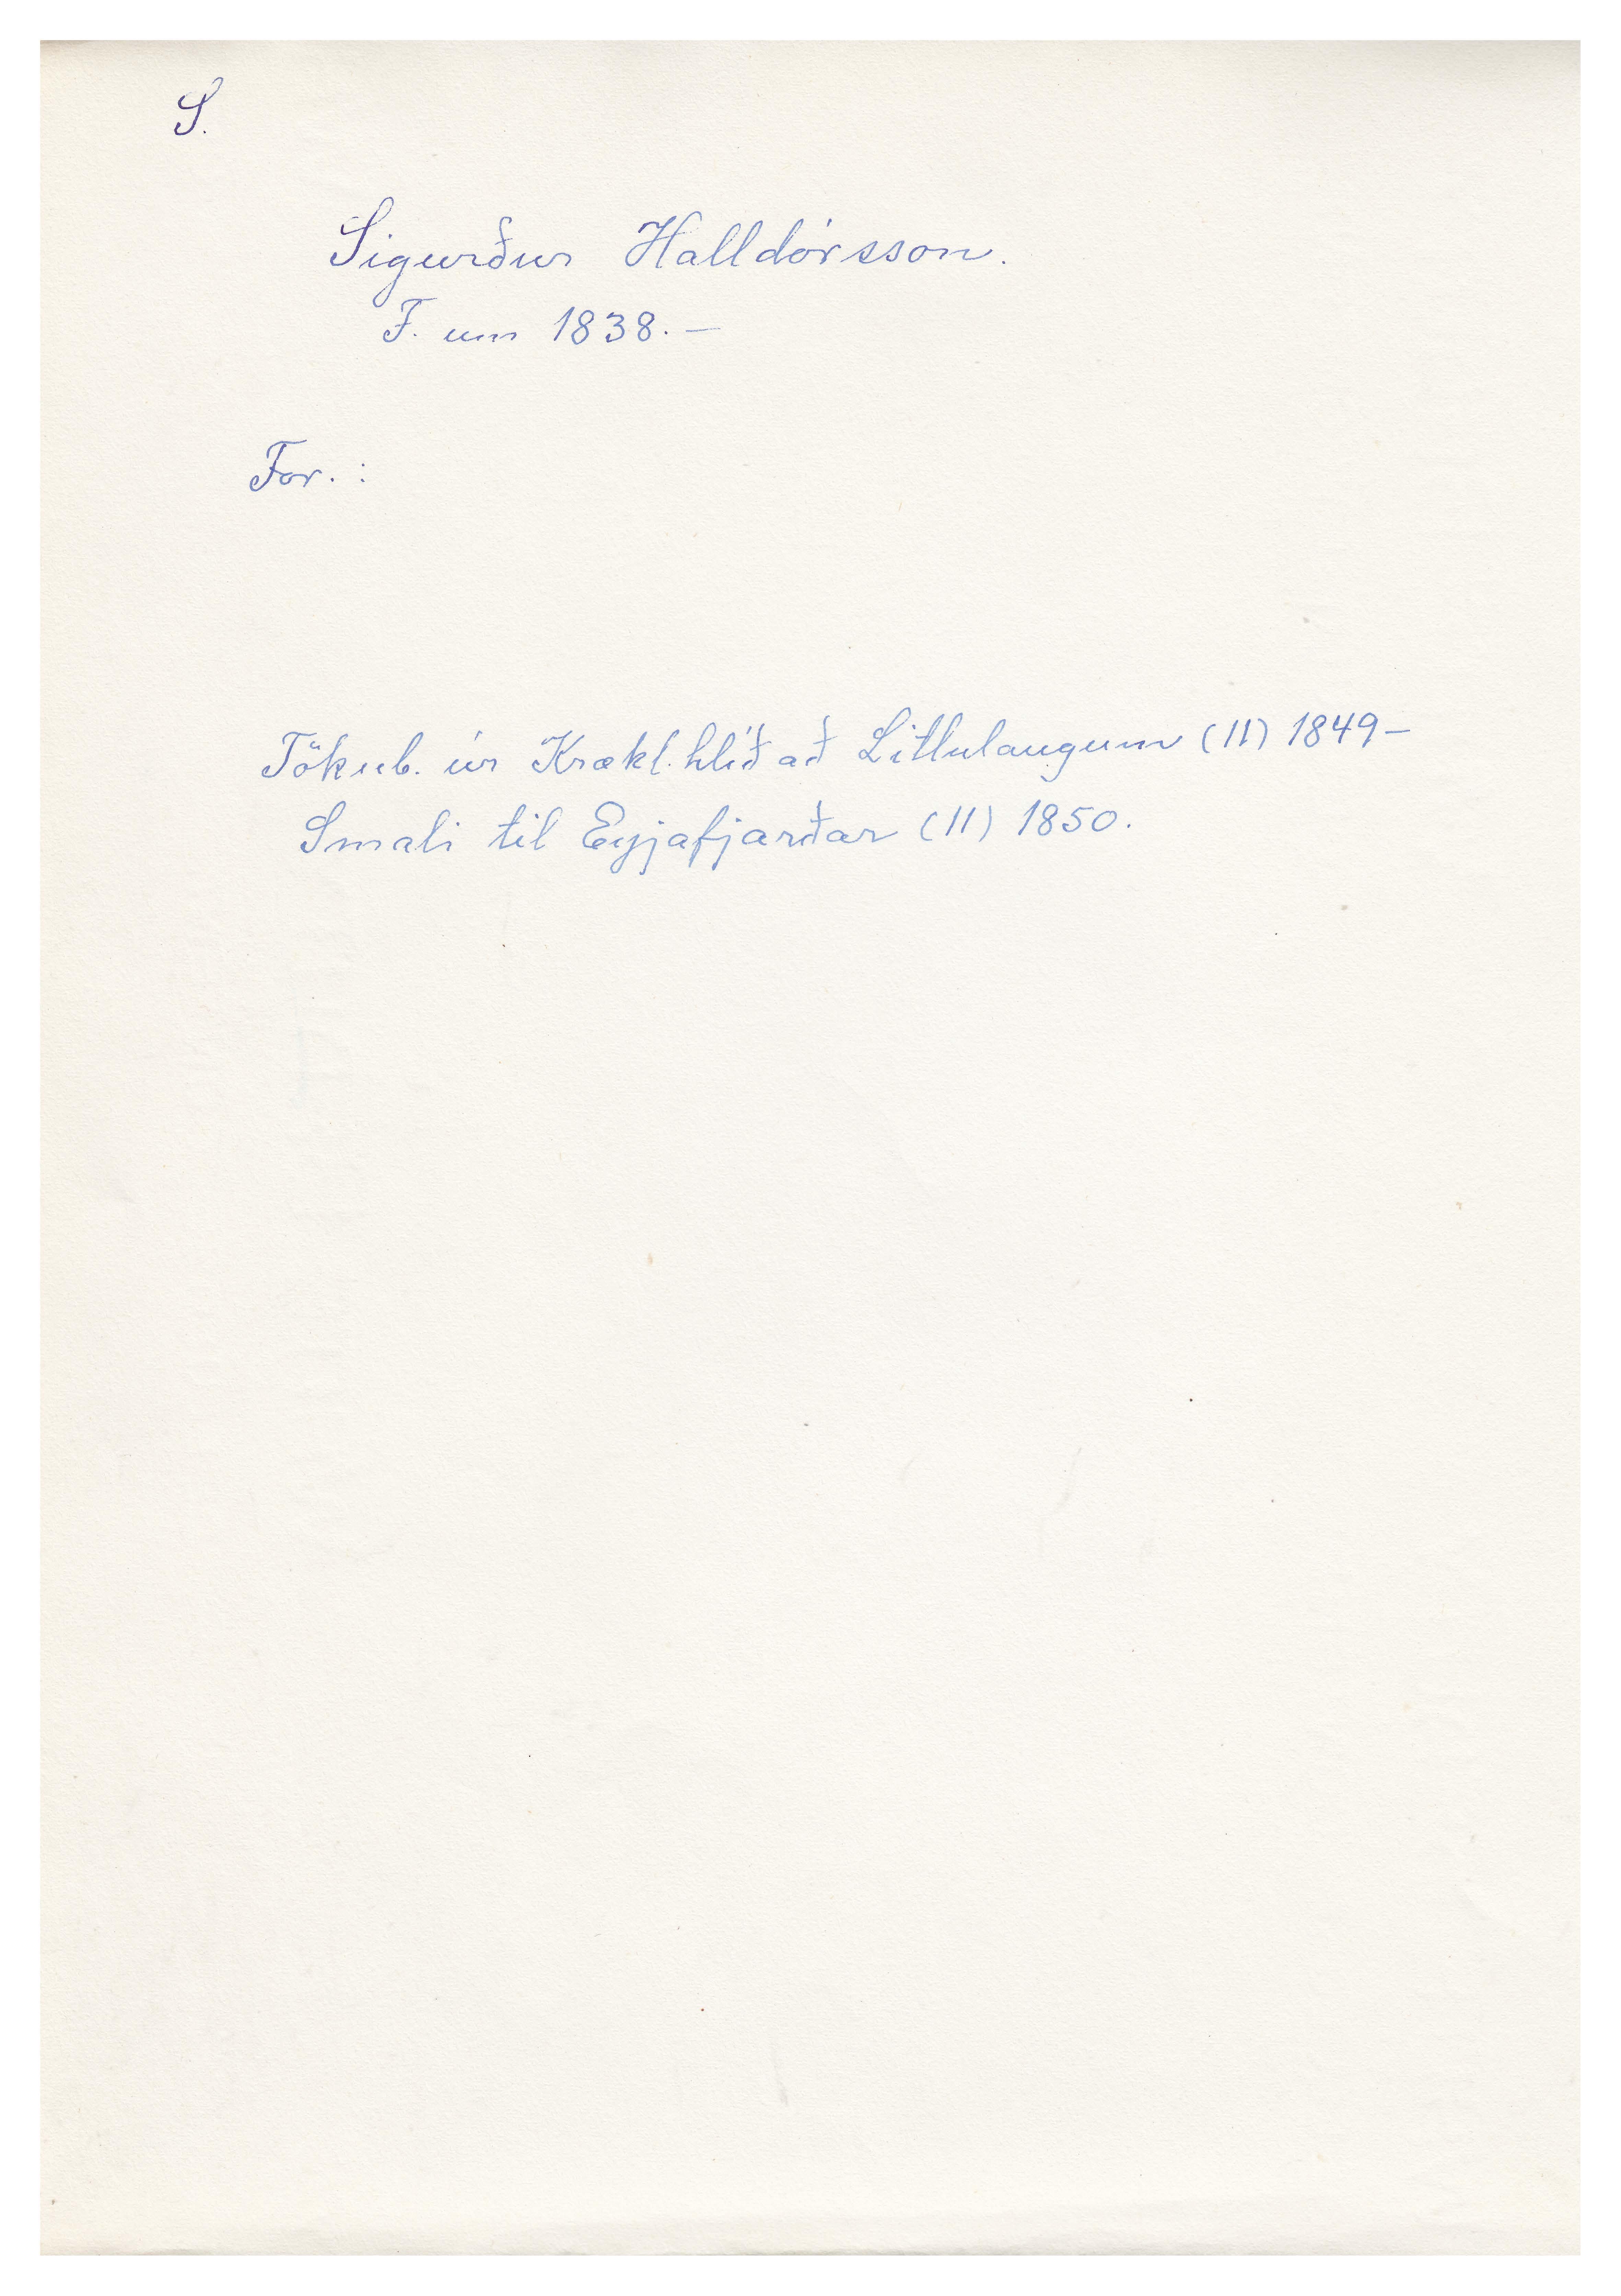 S.
Sigurður Halldórsson.
F. um 1838. –
For. :
Tökub. úr Krækl.hlíð að Litlulaugum (11) 1849 –
Smali til Eyjafjarðar (11) 1850.